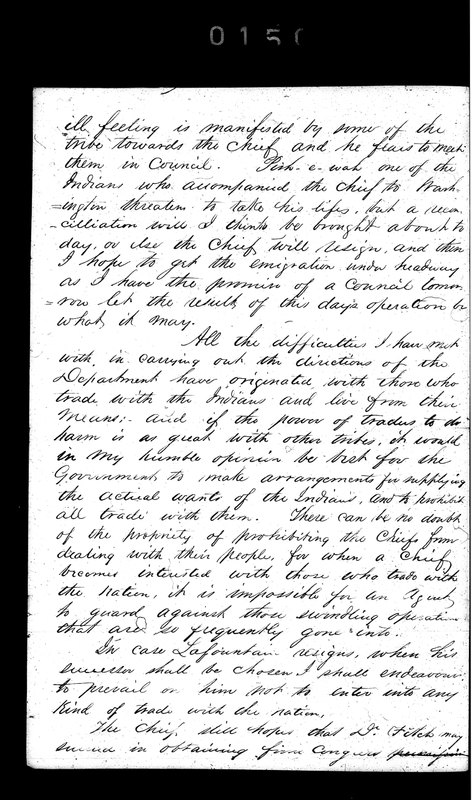 0150
ill feeling is manifested by some of the
tribe towards the Chief, and he fears to meet
them in Council. Pish-e-wah one of the
Indians who accompanied the Chief to Wash-
=ington threatens to take his life, but a recon
-cilliation will I think be brought about to
day, or else the Chief will resign, and then
I hope to get the emigration under headway
as I have the promise of a Council tomor
=row let the result of this days operation be
what it may.
All the difficulties I have met
with, in carrying out the directions of the
Department have originated with those who
trade with the Indians and live from their
means; and if the power of traders to do
harm is as great with other tribes, it would
in my humble opinion be best for the
Government to make arrangements for supplying
the actual wants of the Indians, and to prohibit
all trade with them. There can be no doubt
of the propriety of prohibiting the Chiefs from
dealing with their people, for when a Chief
becomes interested with those who trade with
the nation, it is impossible for an Agent
to guard against those swindling operations
that are so frequently gone into.
In case Lafountain resigns, when his
successor shall be chosen I shall endeavour
to prevail on him not to enter into any
kind of trade with the nation.
The Chief still hopes that Dr Fitch may
succeed in obtaining from Congress permission